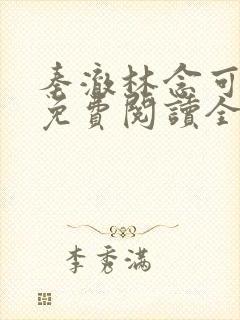 秦澈林念可
免費閱讀全
李秀滿